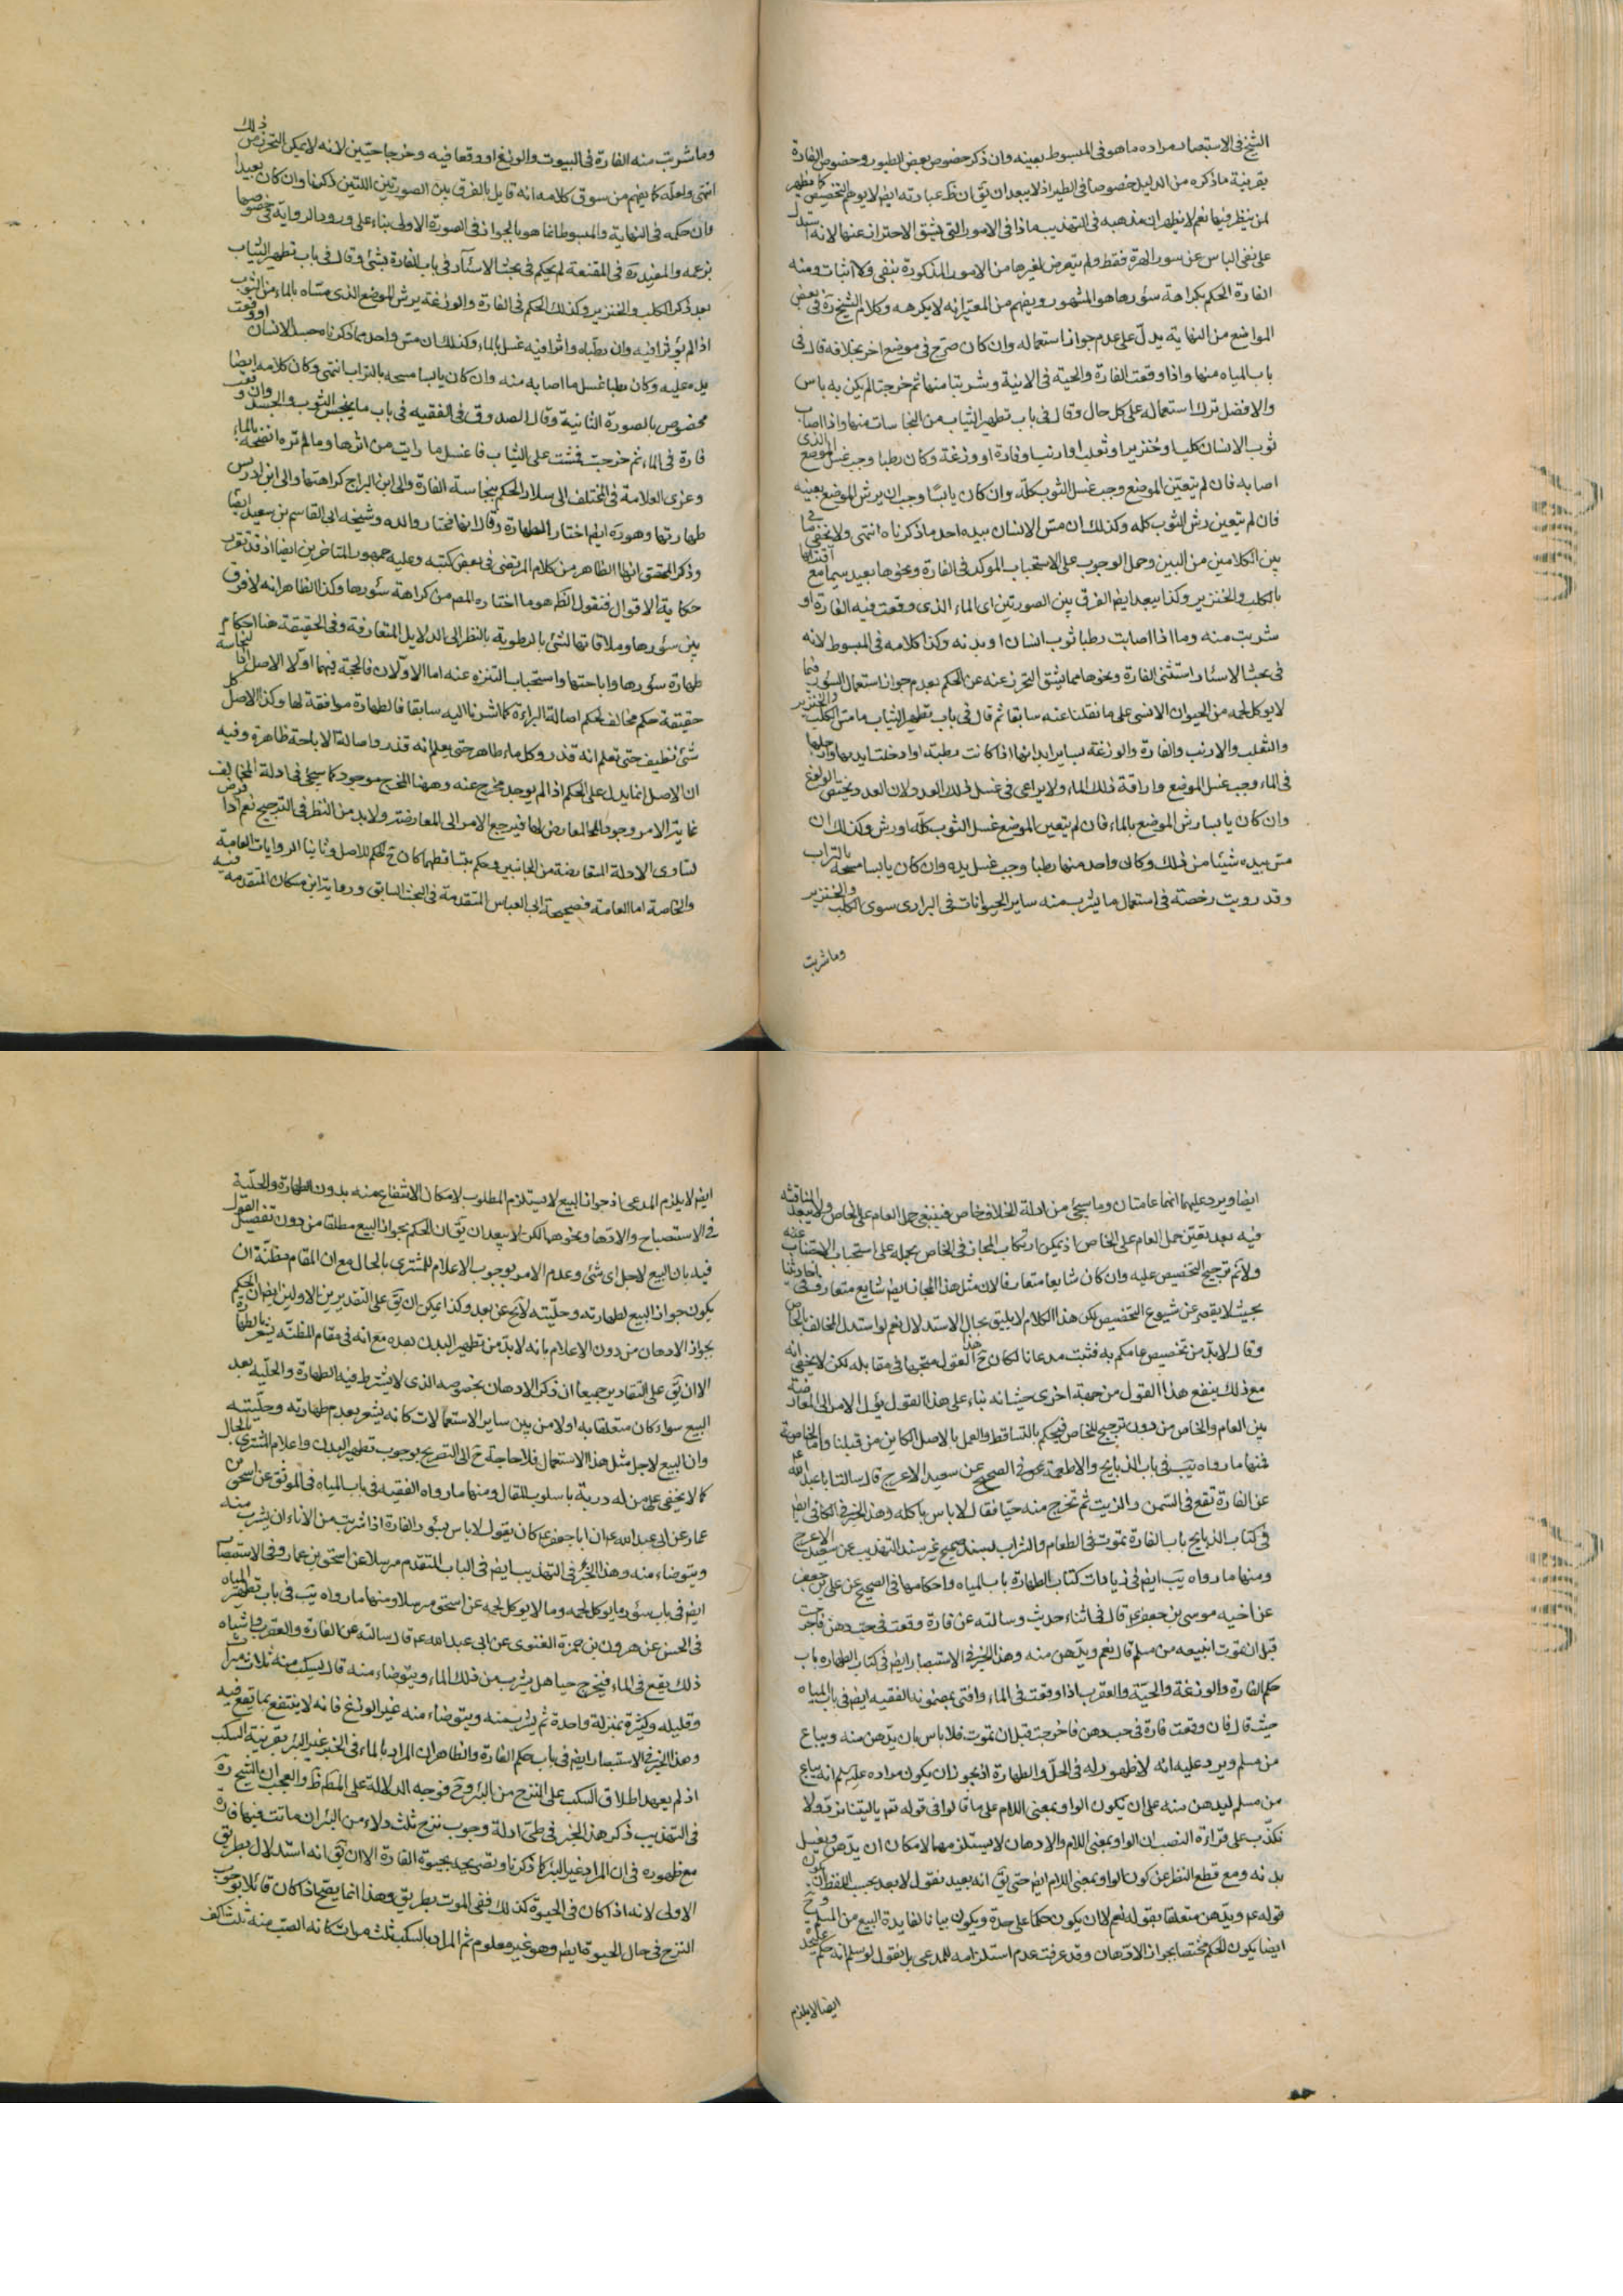 الشيخ فى الاستبصار مراده ما هو فى المبسوط بعينه وان ذكر خصوص بعض الطيور وخصوص الفارة
بقرينة ما ذكره من الدليل خصوصا فى الطير اذ لا يبعد ان يق ان نظ عبارته ايض لا يوهم التخصيص كما يظهر
لمن ينظر فيها نعم لا يظهر ان مذهبه فى التهذيب ماذا فى الامور التى يشق الاحتراز عنها لانه استدل
على نفى الباس عن سور الهرة فقط ولم يتعرض لغيرها من الامور المذكورة بنفى ولا اثبات ومنه
الفارة الحكم بكراهة سئورها هو المشهور ويفهم من المعتبر انه لا يكرهه وكلام الشيخ ره فى بعض
المواضع من النهاية يدل على عدم جواز استعماله وان كان صرح فى موضع اخر بخلافه قال فى
باب المياه منها واذا وقعت الفارة والحية فى الانية وشربتا منها ثم خرجتا لم يكن به باس
والافضل ترك استعماله على كل حال وقال فى باب تطهير الثياب من النجاسات منها واذا اصاب
ثوب الانسان كلب او خنزير او ثعلب او ارنب او فارة او وزغة وكان رطبا وجب غسل الموضع الذى
اصابه فان لم يتعين الموضع وجب غسل الثوب كله وان كان يابسا وجب ان يرش الموضع بعينه
فان لم يتعين رش الثوب كله وكذلك ان مس الانسان بيده احد ما ذكرناه انتهى ولا يخفى ما فى
بين الكلامين من البين وحمل الوجوب على الاستحباب الموكد فى الفارة ونحوها بعيد سيما مع اقترانها
بالكلب والخنزير وكذا يبعد ايض الفرق بين الصورتين اى الماء الذى وقعت فيه الفارة او
شربت منه وما اذا اصابت رطبا ثوب انسان او بدنه وكذا كلامه فى المبسوط لانه
فى بحث الاسئار استثنى الفارة ونحوها مما يشق التحرز عنه عن الحكم بعدم جواز استعمال السئور فيما
لا يوكل لحمه من الحيوان الانسى على ما نقلنا عنه سابقا ثم قال فى باب تطهير الثياب ما مس الكلب والخنزير
والثعلب والارنب والفارة والوزغة بساير ابدانها اذا كانت رطبة او ادخلت ايديها وارجلها
فى الماء وجب غسل الموضع واراقة ذلك الماء ولا يراعى فى غسل ذلك العدد لان العدد يختص الولوغ
وان كان يابسا رش الموضع بالماء فان لم يتعين الموضع غسل الثوب كله او رش وكذلك ان
مس بيده شيئا من ذلك وكان واحد منهما رطبا وجب غسل يده وان كان يابسا مسحه بالتراب
وقد رويت رخصة فى استعمال ما يشرب منه ساير الحيوانات فى البرارى سوى الكلب والخنزير
وما شربت
وما شربت منه الفارة فى البيوت والوزغ او وقعا فيه وخرجا حيين لانه لا يمكن التحرز من ذلك
انتهى ولعله كما يفهم من سوق كلامه انه قايل بالفرق بين الصورتين اللتين ذكرنا وان كان بعيدا
فان حكمه فى النهاية والمبسوط انما هو بالجواز فى الصورة الاولى بناء على ورود الرواية فى خصوصها
بزعمه والمفيد ره فى المقنعة لم يحكم فى بحث الاسئار فى باب الفارة بشئ وقال فى باب تطهير الثياب
بعد ذكر الكلب والخنزير وكذلك الحكم فى الفارة والوزغة يرش الموضع الذى مساه بالماء من الثوب
اذا لم يؤثرا فيه وان رطباه واثرا فيه غسل بالماء وكذلك ان مس واحد مما ذكرناه جسد الانسان او وقعت
يده عليه وكان رطبا غسل ما اصابه منه وان كان يابسا مسحه بالتراب انتهى وكان كلامه ايضا
مخصوص بالصورة الثانية وقال الصدوق فى الفقيه فى باب ما ينجس الثوب والجسد وان وقعت
فارة فى الماء ثم خرجت فمشت على الثياب فاغسل ما رايت من اثرها وما لم تره انضحه بالماء
وعزى العلامة فى المختلف الى سلار الحكم بنجاسة الفارة والى ابن البراج كراهتها والى ابن ادريس
طهارتها وهو ره ايض اختار الطهارة وقال انها مختار والده وشيخه ابى القاسم بن سعيد ايضا
وذكر المحقق انها الظاهر من كلام المرتضى فى بعض كتبه وعليه جمهور المتاخرين ايضا اذ قد تقرر
حكاية الاقوال فنقول الظ هو ما اختاره المص من كراهة سئورها وكذا الظاهر انه لا فرق
بين سئورها وملاقاتها لشئ بالرطوبة بالنظر الى الدلايل المتعارفة وفى الحقيقة هنا احكام
طهارة سئورها واباحتها واستحباب التنزه عنه اما الاولان فالحجة فيهما اولا الاصل
حقيقة حكم مخالف لحكم اصالة البراءة كما اشرنا اليه سابقا فالطهارة موافقة لها وكذا الاصل كل
شئ نظيف حتى تعلم انه قذر وكل ماء طاهر حتى يعلم انه قذر واصالة الاباحة ظاهرة وفيه
ان الاصل انما يدل على الحكم اذا لم يوجد مخرج عنه وههنا المخرج موجود كما سيجئ فى ادلة المخالف
غاية الامر وجود المعارض لها فيرجع الامر الى المعارضة ولابد من النظر فى الترجيح نعم اذا فرض
تساوى الادلة المتعارضة من الجانبين وحكم بتساقطهما كان ح الحكم للاصل وثانيا الروايات العامة
والخاصة اما العامة فصحيحة ابى العباس المتقدمة فى البحث السابق ورواية ابن مسكان المتقدمة فيه
ايضا ويرد عليهما انهما عامتان وما سيجئ من ادلة الخلاف خاص فينبغى حمل العام على الخاص ولا يبعد المناقشة
فيه بعدم تعين حمل العام على الخاص اذ يمكن ارتكاب المجاز فى الخاص بحمله على استحباب الاجتناب عنه
ولانم ترجيح التخصيص عليه وان كان شايعا متعارفا لان مثل هذا المجاز ايض شايع متعارف فى احاديثنا
بحيث لا يقصر عن شيوع التخصيص لكن هذا الكلام لا يليق بحال الاستدلال نعم لو استدل المخالف بالخاص
وقال لابد من تخصيص عامكم به فثبت مدعانا لكان ح هذا القول متجها فى مقابله لكن لا يخفى انه
مع ذلك ينفع هذا القول من جهة اخرى حيث انه بناء على هذا القول يؤل الامر الى المعارضة
بين العام والخاص من دون ترجيح للخاص فيحكم بالتساقط والعمل بالاصل الكاين من قبلنا واما الخاصة
فمنها ما رواه يب فى باب الذبايح والاطعمة فى الصحيح عن سعيد الاعرج قال سالت ابا عبد الله
عن الفارة تقع فى السمن والزيت ثم تخرج منه حيا فقال لا باس باكله وهذا الخبر فى الكافى ايض
فى كتاب الذبايح باب الفارة تموت فى الطعام والشراب بسند صحيح غير سند التهذيب عن سعيد الاعرج
ومنها ما رواه يب ايض فى زيادات كتاب الطهارة باب المياه واحكامها فى الصحيح عن على بن جعفر
عن اخيه موسى بن جعفر ع قال فى اثناء حديث وسالته عن فارة وقعت فى حب دهن فاخرجت
قبل ان تموت ايبيعه من مسلم قال نعم ويدهن منه وهذا الخبر فى الاستبصار ايض فى كتاب الطهارة باب
حكم الفارة والوزغة والحية والعقرب اذا وقعت فى الماء وافتى بمضمونه الفقيه ايض فى باب المياه
حيث قال فان وقعت فارة فى حب دهن فاخرجت قبل ان تموت فلا باس بان يدهن منه ويباع
من مسلم ويرد عليه انه لا ظهور له فى الحل والطهارة اذ يجوز ان يكون مراده عليه سلم انه يباع
من مسلم ليدهن منه على ان يكون الواو بمعنى اللام على ما قالوا فى قوله تع يا ليتنا نرد ولا
نكذب على قراءة النصب ان الواو بمعنى اللام والادهان لا يستلزمهما لامكان ان يدهن ويغسل
بدنه ومع قطع النظر عن كون الواو بمعنى اللام ايض حتى يق انه بعيد نقول لا بعد بحسب اللفظ ان يكون
قوله ع ويدهن متعلقا بقوله نعم لا ان يكون حكما على حدة ويكون بيانا لفايدة البيع من المسلم وح
ايضا يكون الحكم مختصا بجواز الادهان وقد عرفت عدم استلزامه للمدعى بل نقول لو سلم انه حكم على حد
ايضا لا يلزم
ايض لا يلزم المدعى اذ جواز البيع لا يستلزم المطلوب لامكان الانتفاع منه بدون الطهارة والحلية
فى الاستصباح والادهان ونحوهما لكن لا يبعد ان يق ان الحكم بجواز البيع مطلقا من دون تفصيل القول
فيه بان البيع لاجل اى شئ وعدم الامر بوجوب الاعلام للمشترى بالحال مع ان المقام مظنة ان
يكون جواز البيع لطهارته وحليته لا يخ عن بعد وكذا يمكن ان يق على التقديرين الاولين ايض ان الحكم
بجواز الادهان من دون الاعلام بانه لابد من تطهير البدن بعده مع انه فى مقام المظنة يشعر بالطهارة
الا ان يق على التقادير جميعا ان ذكر الادهان بخصوصه الذى لا يشترط فيه الطهارة والحلية بعد
البيع سواء كان متعلقا به اولا من بين ساير الاستعمالات كانه يشعر بعدم طهارته وحليته
وان البيع لاجل مثل هذا الاستعمال فلا حاجة ح الى التصريح بوجوب تطهير البدن واعلام المشترى بالحال
كما لا يخفى على من له دربة باسلوب المقال ومنها ما رواه الفقيه فى باب المياه فى الموثق عن اسحق بن
عمار عن ابى عبد الله ع ان ابا جعفر ع كان يقول لا باس بسئور الفارة اذا شربت من الاناء ان يشرب منه
ويتوضاء منه وهذا الخبر فى التهذيب ايض فى الباب المتقدم مرسلا عن اسحق بن عمار وفى الاستبصار
ايض فى باب سئور ما يوكل لحمه وما لا يوكل لحمه عن اسحق مرسلا ومنها ما رواه يب فى باب تطهير المياه
فى الحسن عن هرون بن حمزة الغنوى عن ابى عبد الله ع قال سالته عن الفارة والعقرب واشباه
ذلك يقع فى الماء فيخرج حيا هل يشرب من ذلك الماء ويتوضاء منه قال يسكب منه ثلاث مرات
وقليله وكثيره بمنزلة واحدة ثم يشرب منه ويتوضاء منه غير الوزغ فانه لا ينتفع بما تقع فيه
وهذا الخبر فى الاستبصار ايض فى باب حكم الفارة والظاهر ان المراد بالماء فى الخبر غير البئر بقرينة السكب
اذ لم يعهد اطلاق السكب على النزح من البئر وح فوجه الدلالة على المط ظ والعجب ان الشيخ ره
فى التهذيب ذكر هذا الخبر فى طى ادلة وجوب نزح ثلث دلاء من البئر ان ماتت فيها فارة
مع ظهوره فى ان المراد غير البئر كما ذكرنا وتصريحه بحيوة الفارة الا ان يق انه استدلال بطريق
الاولى لانه اذا كان فى الحيوة كذلك ففى الموت بطريق وهذا انما يصح اذا كان قائلا بوجوب
النزح فى حال الحيوة ايض وهو غير معلوم ثم المراد بالسكب ثلث مرات كانه الصب منه ثلث اكف